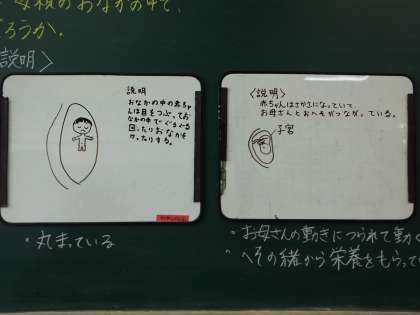 母親のおなかの中で、
ろうか。
説明〉
説明
おなかの中の赤ちゃ
んは目をつぶって、お
なかの中でぐるぐる
回ったりおなかを
けったりする。
〈説明〉
赤ちゃんはさかさになっていて、
お母さんとおへそがつながっている。
子宮
・丸まっている
・お母さんの動きにつられて動く
・へその緒から栄養をもらって